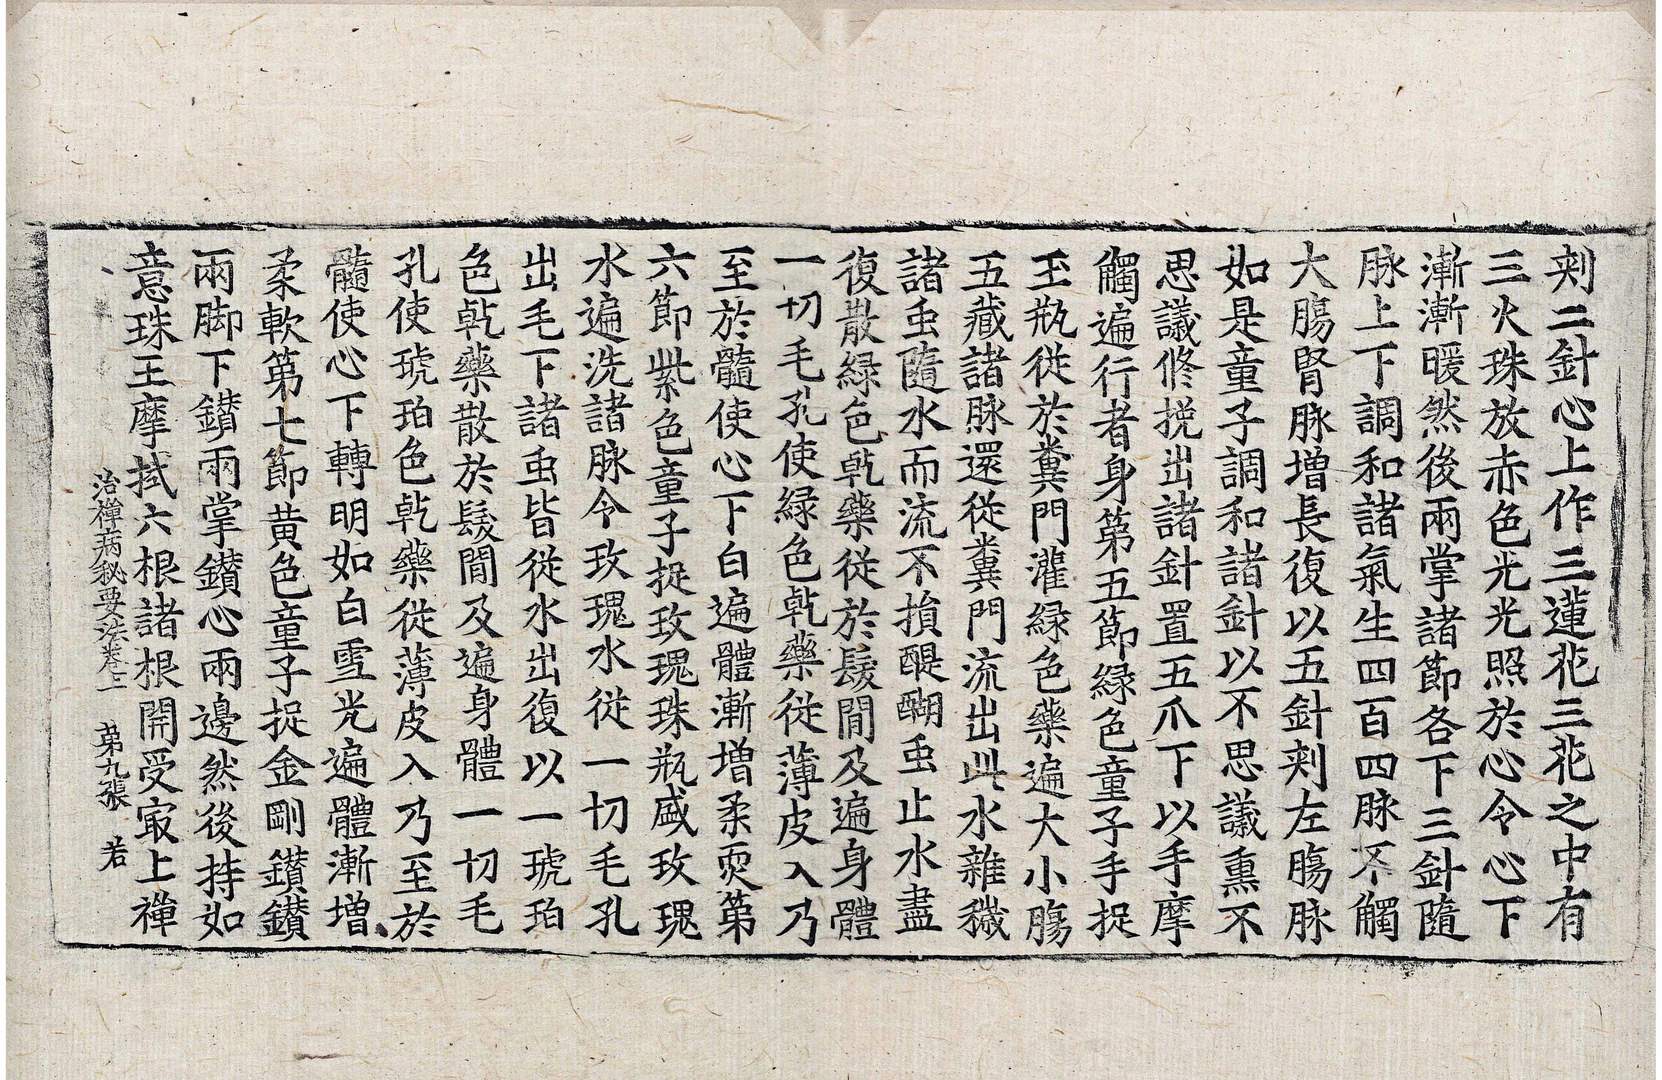 刾二針心上作三蓮花三花之中有
三火珠放赤色光光照於心令心下
漸漸暖然後兩掌諸節各下三針隨
脉上下調和諸氣生四百四脉不觸
大膓腎脉增長復以五針刾左膓脉
如是童子調和諸針以不思議熏不
思議修挽出諸針置五爪下以手摩
觸遍行者身第五節綠色童子手捉
玉瓶從於糞門灌綠色藥遍大小膓
五藏諸脉還從糞門流出此水雜穢
諸䖝隨水而流不損醍醐䖝止水盡
復散綠色乹藥從於髮間及遍身體
一切毛孔使綠色乹藥從薄皮入乃
至於髓使心下白遍體漸增柔耎第
六節紫色童子捉玫瑰珠瓶盛玫瑰
水遍洗諸脉令玫瑰水從一切毛孔
出毛下諸䖝皆從水出復以一琥珀
色乹藥散於髮間及遍身體一切毛
孔使琥珀色乹藥從薄皮入乃至於
髓使心下轉明如白雪光遍體漸增
柔軟第七節黃色童子捉金剛鑚鑚
兩脚下鑚兩掌鑚心兩邊然後持如
意珠王摩拭六根諸根開受㝡上禪
治禪病秘要法卷上　第九張　若